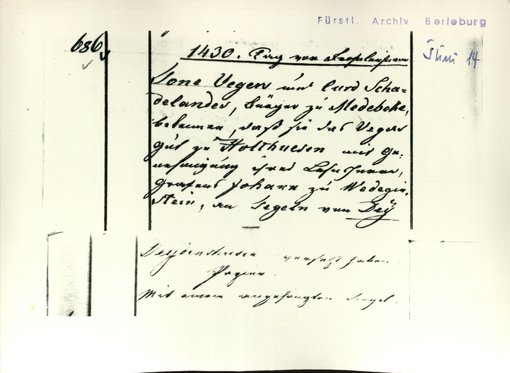 Fürstl. Archiv Berleburg
686.
1430. Tag von
Juni 14
Tone Vegen und Curd Scha-
delandes, Bürger zu Medebeke,
bekennen, daß sie das Vegen
gut zu Holthusen mit Ge-
nehmigung ihres Lehnherrn,
Grafen Johann zu Wedegin-
stein, an Segeln von Dey
versetzt haben.
Papier.
Mit einem angehängten Siegel.